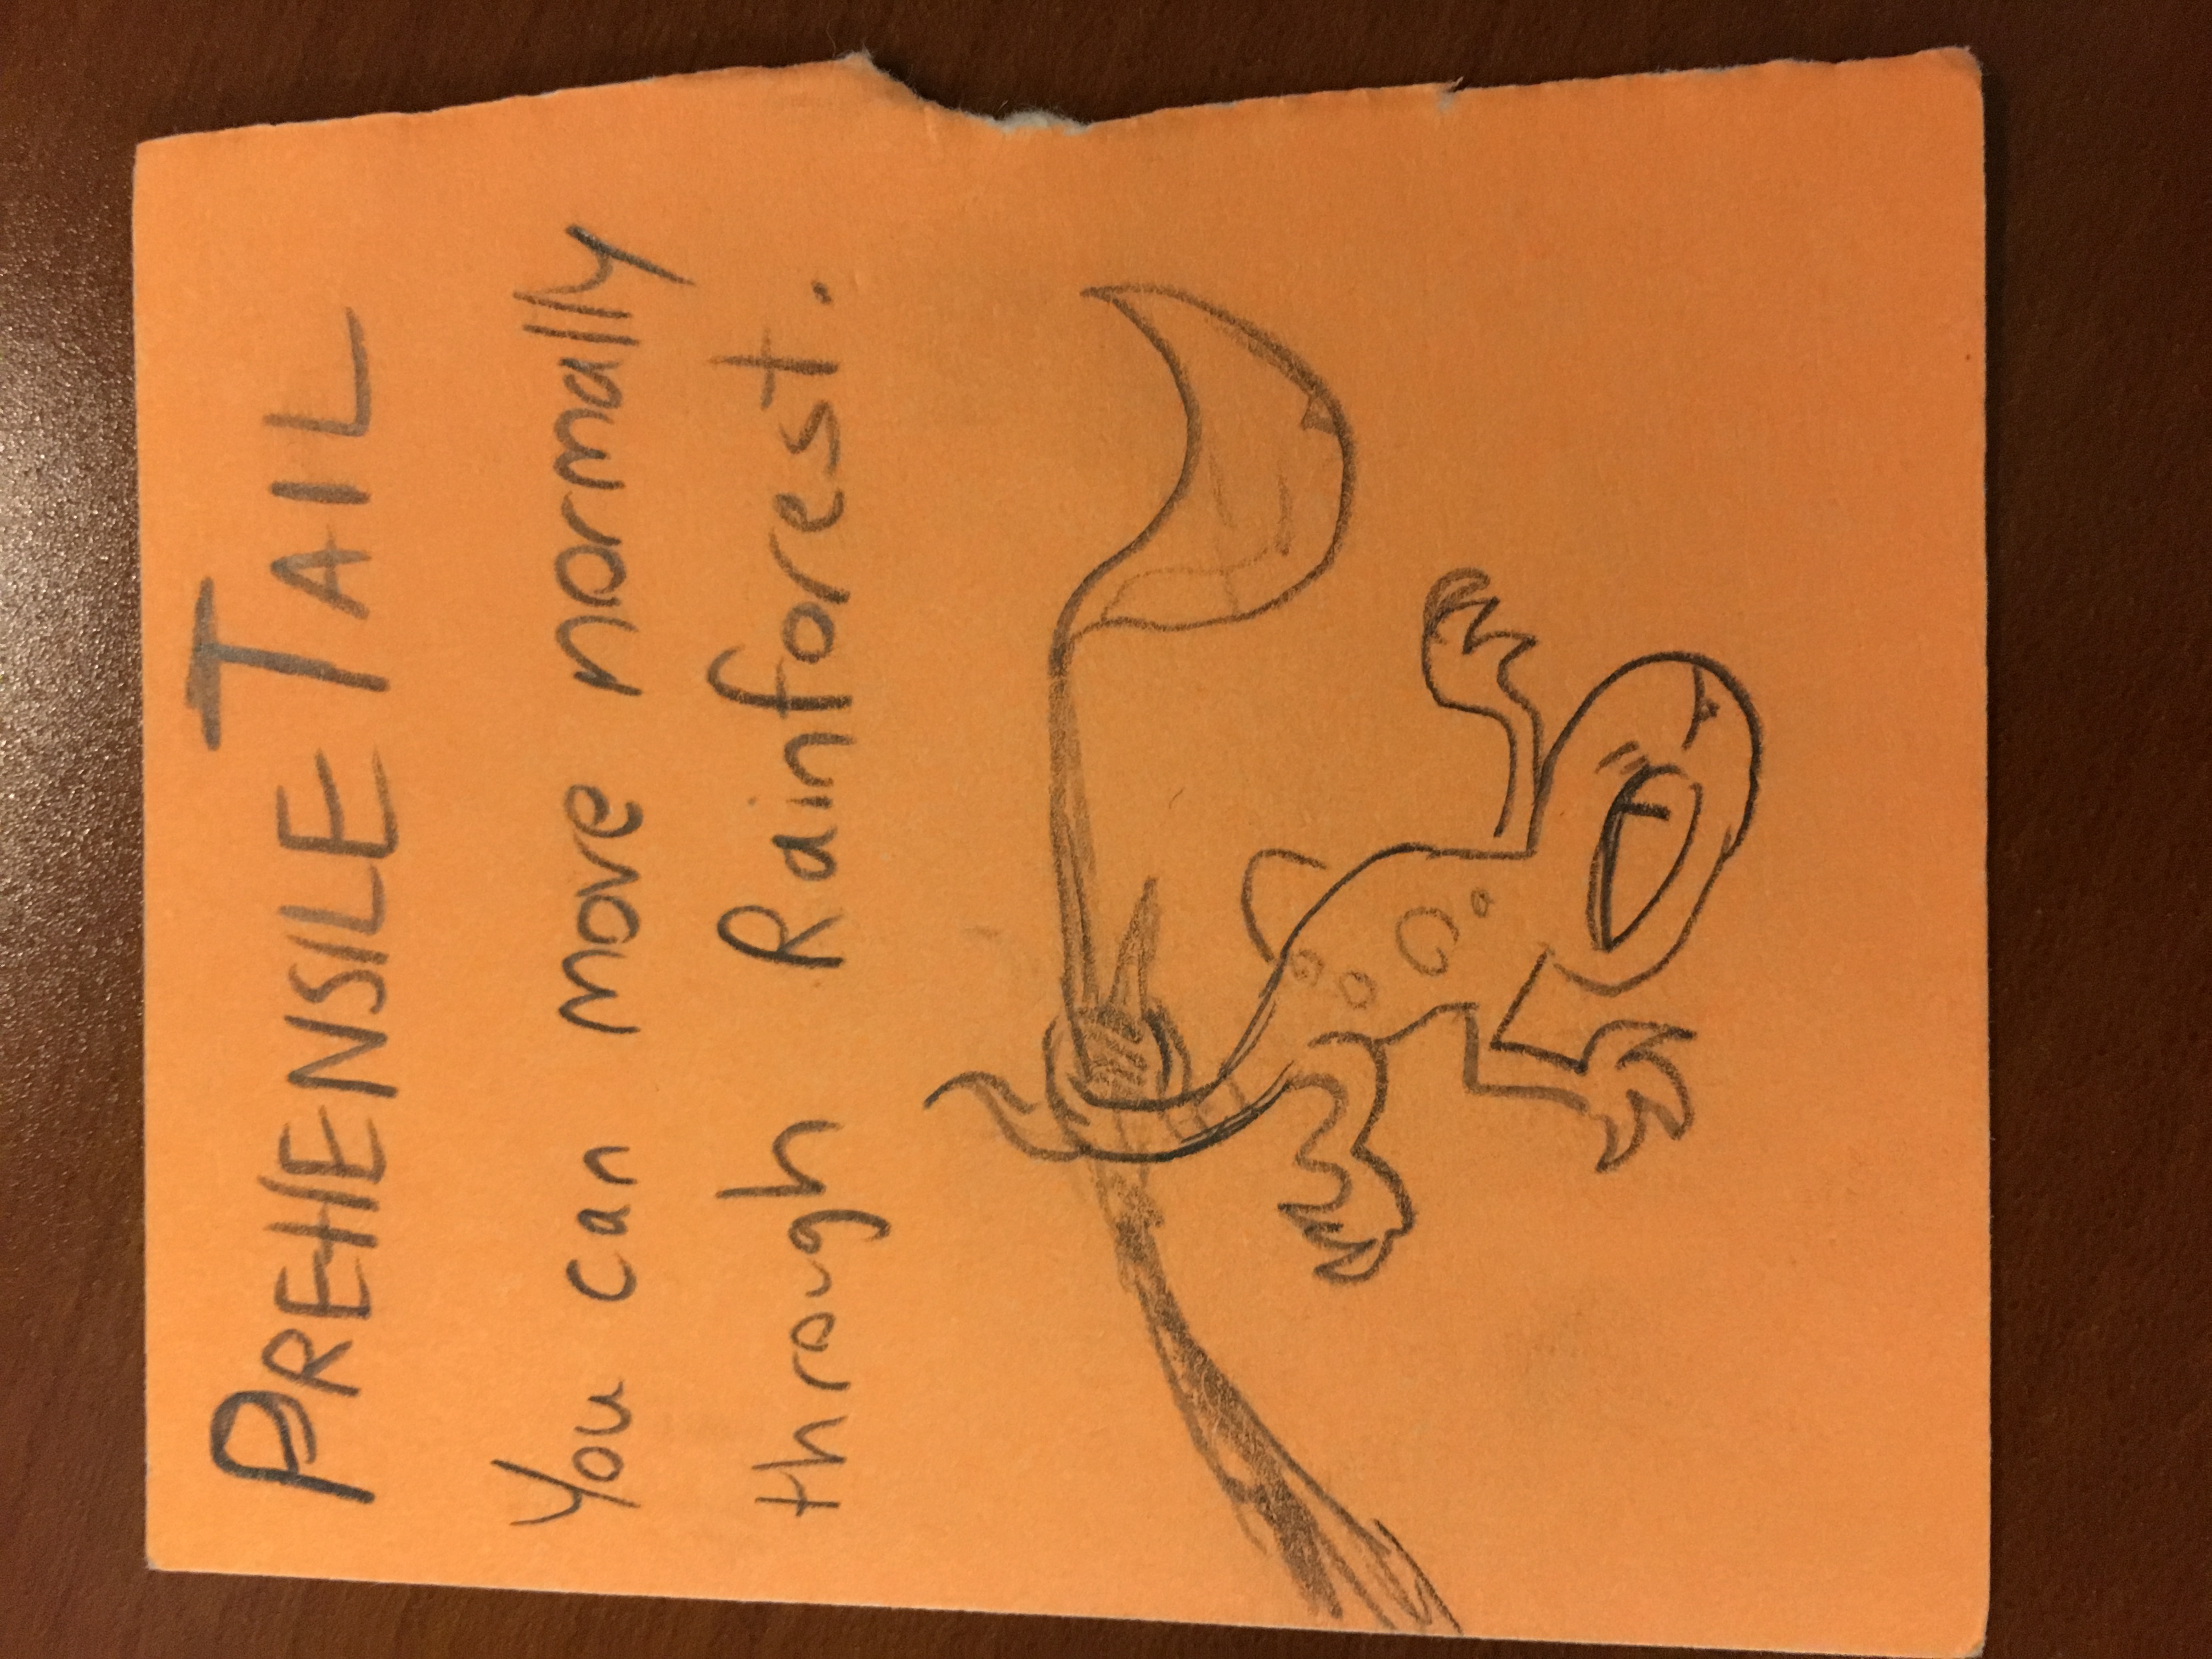 PREHENSILE TAIL
You can move normally
through Rainforest.